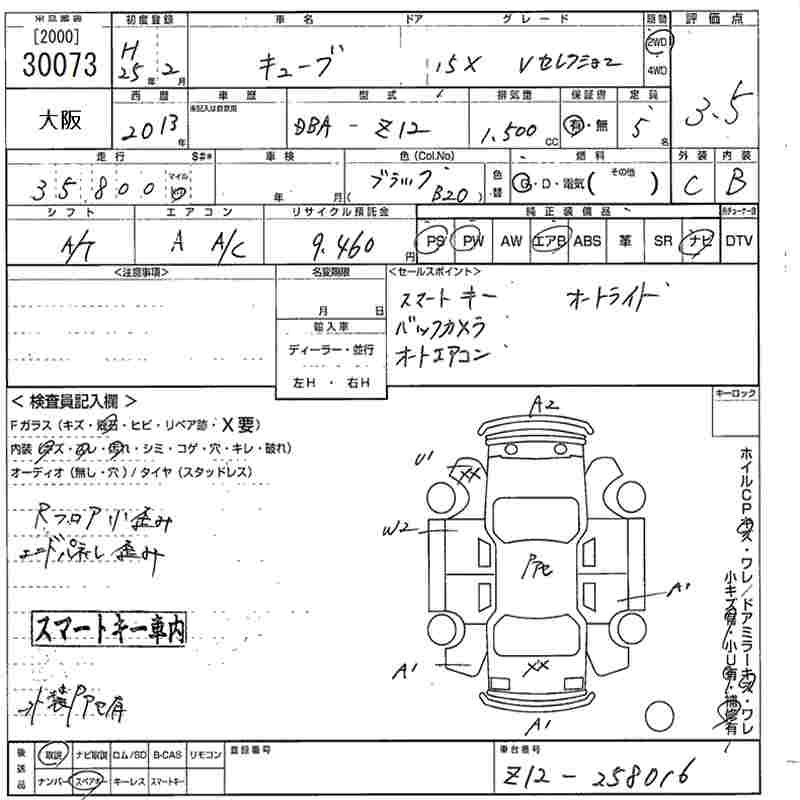 [2000]
30073
大阪
初度登録
H 25年 2月
車名
キューブ
ドア
グレード
15X Vセレクション
駆動
2WD
4WD
評価点
3.5
西暦
2013年
車歴
未記入は自家用
型式
DBA - Z12
排気量
1,500 CC
保証書
有・無
定員
5名
走行
S#*
35800
マイル
車検
年 月
色(Col.No)
ブラック
( B20 )
色替
燃料
G・D・電気( その他 )
外装
C
内装
B
シフト
A/T
エアコン
A A/C
リサイクル預託金
9,460円
純正装備品
PS PW AW エアB ABS 革 SR ナビ DTV
<注意事項>
名変期限
月 日
輸入車
ディーラー・並行
左H ・ 右H
<セールスポイント>
スマートキー オートライト
バックカメラ
オートエアコン
キーロック
< 検査員記入欄 >
Fガラス(キズ・飛石・ヒビ・リペア跡・X要)
内装(キズ・スレ・汚れ・シミ・コゲ・穴・キレ・破れ)
オーディオ(無し・穴)/タイヤ(スタッドレス)
Rフロア小歪み
エンドパネル歪み
スマートキー車内
外装Pアセ有
A2
U1
XX
W2
Pアセ
A1
A1
XX
A1
ホイルCPキズ・ワレ/ドアミラーキズ・ワレ
小キズ有・小U有・補修有
後送品
取説 ナビ取説 ロム/SD B-CAS リモコン
ナンバー スペアキー キーレス スマートキー
登録番号
車台番号
Z12 - 258016